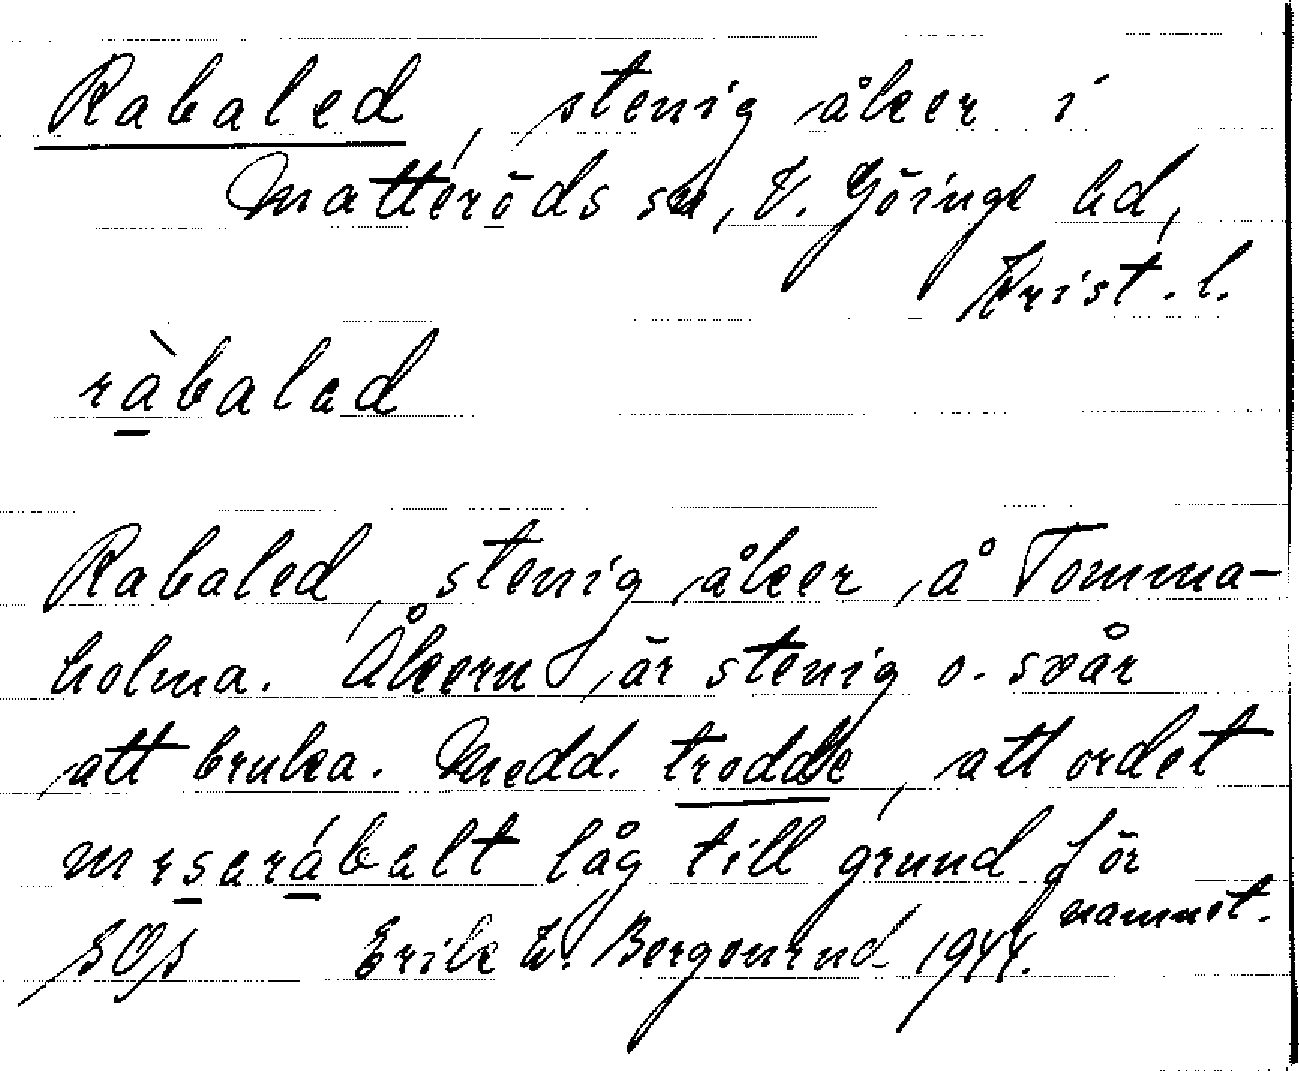 Rabaled, stenig åker i
Matteröds sn, V. Göinge hd,
Krist. l.
ràbaled
Rabaled, stenig åker å Tomma-
holma. Åkern är stenig o. svår
att bruka. Medd. trodde, att ordet
mɪserábelt låg till grund för
namnet.
SOS Erik W. Bergenrud 1944.